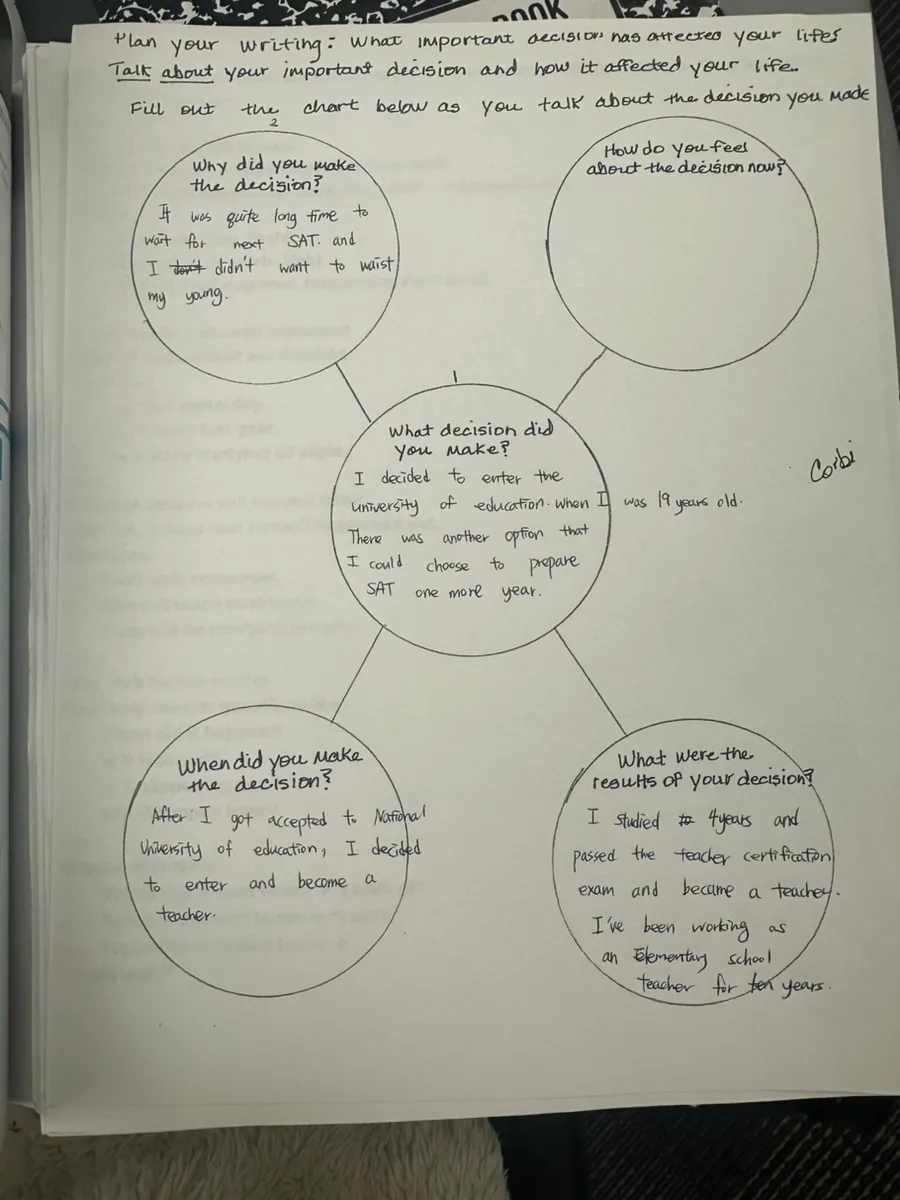 BOOK
Plan your writing: What important decision has affected your life?
Talk about your important decision and how it affected your life.
Fill out the chart below as you talk about the decision you made
2
Why did you make
the decision?
It was quite long time to
wait for next SAT. and
I don't didn't want to waist
my young.
How do you feel
about the decision now?
1
What decision did
you make?
I decided to enter the
university of education. when I was 19 years old.
There was another option that
I could choose to prepare
SAT one more year.
Corbi
When did you make
the decision?
After I got accepted to National
University of education, I decided
to enter and become a
teacher.
What were the
results of your decision?
I studied 4years and
passed the teacher certification
exam and became a teacher.
I've been working as
an Elementary school
teacher for ten years.